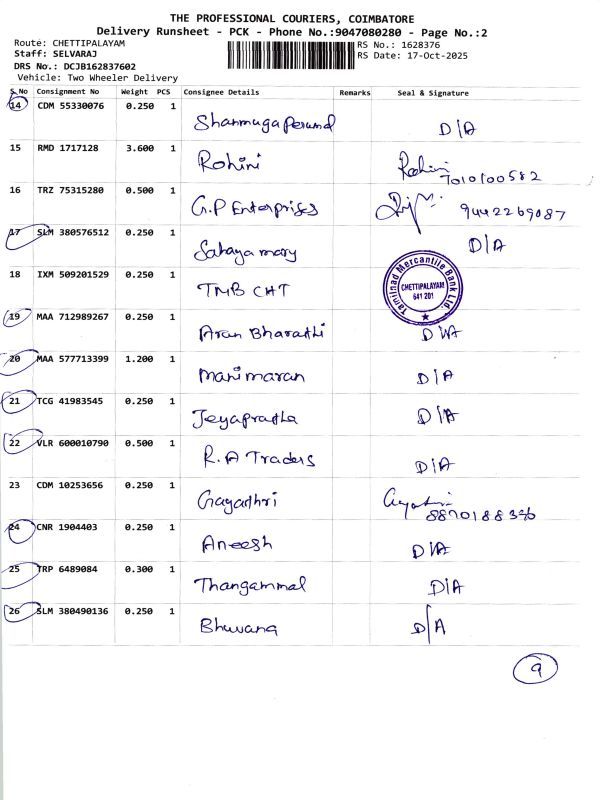 THE PROFESSIONAL COURIERS, COIMBATORE
Delivery Runsheet - PCK - Phone No.:9047080280 - Page No.:2
Route: CHETTIPALAYAM RS No.: 1628376
Staff: SELVARAJ RS Date: 17-Oct-2025
DRS No.: DCJB162837602
Vehicle: Two Wheeler Delivery
S.No Consignment No Weight PCS Consignee Details Remarks Seal & Signature
14 CDM 55330076 0.250 1
Shanmuga Perumal D/A
15 RMD 1717128 3.600 1
Rohini Rohini
7010100582
16 TRZ 75315280 0.500 1
G.P Enterprises 9442269087
17 SLM 380576512 0.250 1 D/A
Sahaya mary
18 IXM 509201529 0.250 1
TMB CHT
Tamilnad Mercantile Bank Ltd.
CHETTIPALAYAM
641 201
19 MAA 712989267 0.250 1
Arun Bharathi D/A
20 MAA 577713399 1.200 1
Manimaran D/A
21 TCG 41983545 0.250 1
Jeyapratha D/A
22 VLR 600010790 0.500 1
R.A Traders D/A
23 CDM 10253656 0.250 1
Gayathri
24 CNR 1904403 0.250 1
Aneesh D/A
25 TRP 6489084 0.300 1
Thangammal D/A
26 SLM 380490136 0.250 1
Bhuvana D/A
9